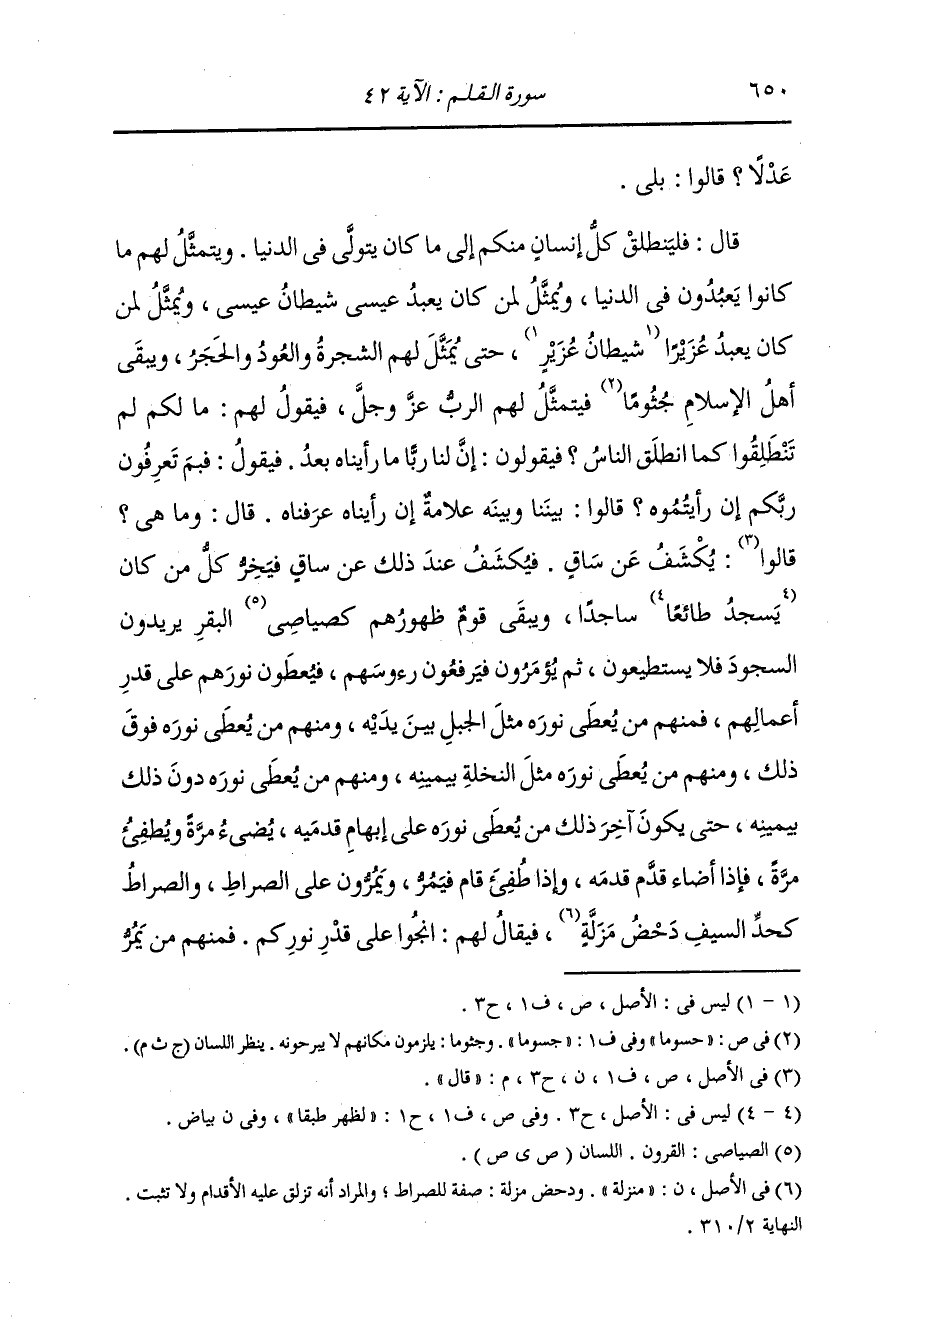 ٦٥٠
سورة القلم : الآية ٤٢
عَدْلًا ؟ قالوا : بلى .
قال : فليَنطلقْ كلُّ إنسانٍ منكم إلى ما كان يتولَّى فى الدنيا . ويتمثَّلُ لهم ما
كانوا يَعبُدُون فى الدنيا ، ويُمثَّلُ لمن كان يعبدُ عيسى شيطانُ عيسى ، ويُمثَّلُ لمن
كان يعبدُ عُزَيْرًا (١ شيطانُ عُزَيْرٍ ١) ، حتى يُمَثَّلَ لهم الشجرةُ والعُودُ والحَجَرُ ، ويبقَى
أهلُ الإسلامِ جُثُومًا (٢) فيتمثَّلُ لهم الربُّ عزَّ وجلَّ ، فيقولُ لهم : ما لكم لم
تَنْطَلِقُوا كما انطلَق الناسُ ؟ فيقولون : إنَّ لنا ربًّا ما رأيناه بعدُ . فيقولُ : فبمَ تَعرِفُون
ربَّكم إن رأيتُمُوه ؟ قالوا : بيننا وبينَه علامةٌ إن رأيناه عرَفناه . قال : وما هى ؟
قالوا (٣) : يُكْشَفُ عَن سَاقٍ . فيُكشَفُ عندَ ذلك عن ساقٍ فيَخِرُّ كلُّ من كان
(٤ يَسجدُ طائعًا ٤) ساجدًا ، ويبقَى قومٌ ظهورُهم كصياصِى (٥) البقرِ يريدون
السجودَ فلا يستطيعون ، ثم يُؤمَرُون فيَرفعُون رءوسَهم ، فيُعطَون نورَهم على قدرِ
أعمالِهم ، فمنهم من يُعطَى نورَه مثلَ الجبلِ بينَ يدَيْه ، ومنهم من يُعطَى نورَه فوقَ
ذلك ، ومنهم من يُعطَى نورَه مثلَ النخلةِ بيمينِه ، ومنهم من يُعطَى نورَه دونَ ذلك
بيمينِه ، حتى يكونَ آخِرَ ذلك من يُعطَى نورَه على إبهامِ قدمَيه ، يُضىءُ مرَّةً ويُطفِئُ
مرَّةً ، فإذا أضاء قدَّم قدمَه ، وإذا طُفِئَ قام فيَمُرُّ ، ويَمُرُّون على الصراطِ ، والصراطُ
كحدِّ السيفِ دَحْضُ مَزَلَّةٍ (٦) ، فيقالُ لهم : انجُوا على قدْرِ نورِكم . فمنهم من يَمُرُّ
(١ - ١) ليس فى : الأصل ، ص ، ف١ ، ح٣ .
(٢) فى ص : «حسوما» وفى ف١ : «جسوما» . وجثوما : يلزمون مكانهم لا يبرحونه . ينظر اللسان (ج ث م) .
(٣) فى الأصل ، ص ، ف١ ، ن ، ح٣ ، م : «قال» .
(٤ - ٤) ليس فى : الأصل ، ح٣ . وفى ص ، ف١ ، ح١ : «لظهر طبقا» ، وفى ن بياض .
(٥) الصياصى : القرون . اللسان ( ص ى ص ) .
(٦) فى الأصل ، ن : «منزلة» . ودحض مزلة : صفة للصراط ؛ والمراد أنه تزلق عليه الأقدام ولا تثبت .
النهاية ٣١٠/٢ .